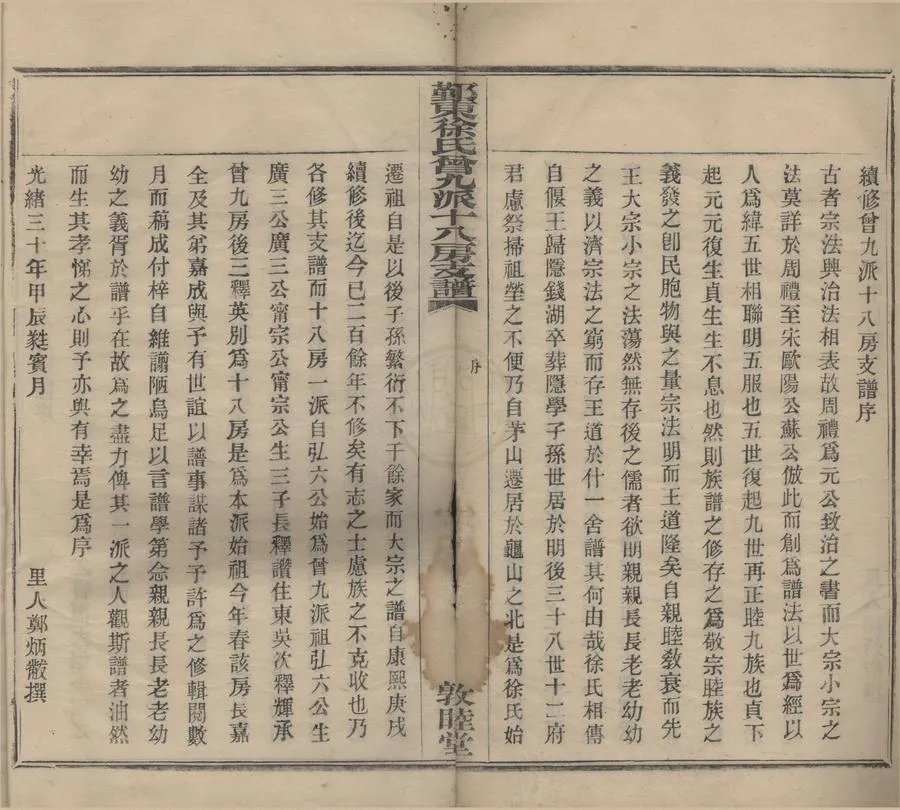 續修曾九派十八房支譜序
古者宗法與治法相表故周禮爲元公致治之書而大宗小宗之
法莫詳於周禮至宋歐陽公蘇公倣此而創爲譜法以世爲經以
人爲緯五世相聯明五服也五世復起九世再正睦九族也貞下
起元元復生貞生生不息也然則族譜之修存之爲敬宗睦族之
義發之卽民胞物與之量宗法明而王道隆矣自親睦教衰而先
王大宗小宗之法蕩然無存後之儒者欲明親親長長老老幼幼
之義以濟宗法之窮而存王道於什一舍譜其何由哉徐氏相傳
自偃王歸隱錢湖卒葬隱學子孫世居於明後三十八世十二府
君慮祭掃祖塋之不便乃自茅山遷居於龜山之北是爲徐氏始
鄞東徐氏曾九派十八房支譜
序
敦睦堂
遷祖自是以後子孫繁衍不下千餘家而大宗之譜自康熙庚戌
續修後迄今已二百餘年不修矣有志之士慮族之不克收也乃
各修其支譜而十八房一派自弘六公始爲曾九派祖弘六公生
廣三公廣三公甯宗公甯宗公生三子長釋讚住東吳次釋輝承
曾九房後三釋英別爲十八房是爲本派始祖今年春該房長嘉
全及其弟嘉成與予有世誼以譜事謀諸予予許爲之修輯閱數
月而稿成付梓自維謭陋烏足以言譜學第念親親長長老老幼
幼之義胥於譜乎在故爲之盡力俾其一派之人觀斯譜者油然
而生其孝悌之心則予亦與有幸焉是爲序
光緒三十年甲辰蕤賓月
里人鄭炳撰